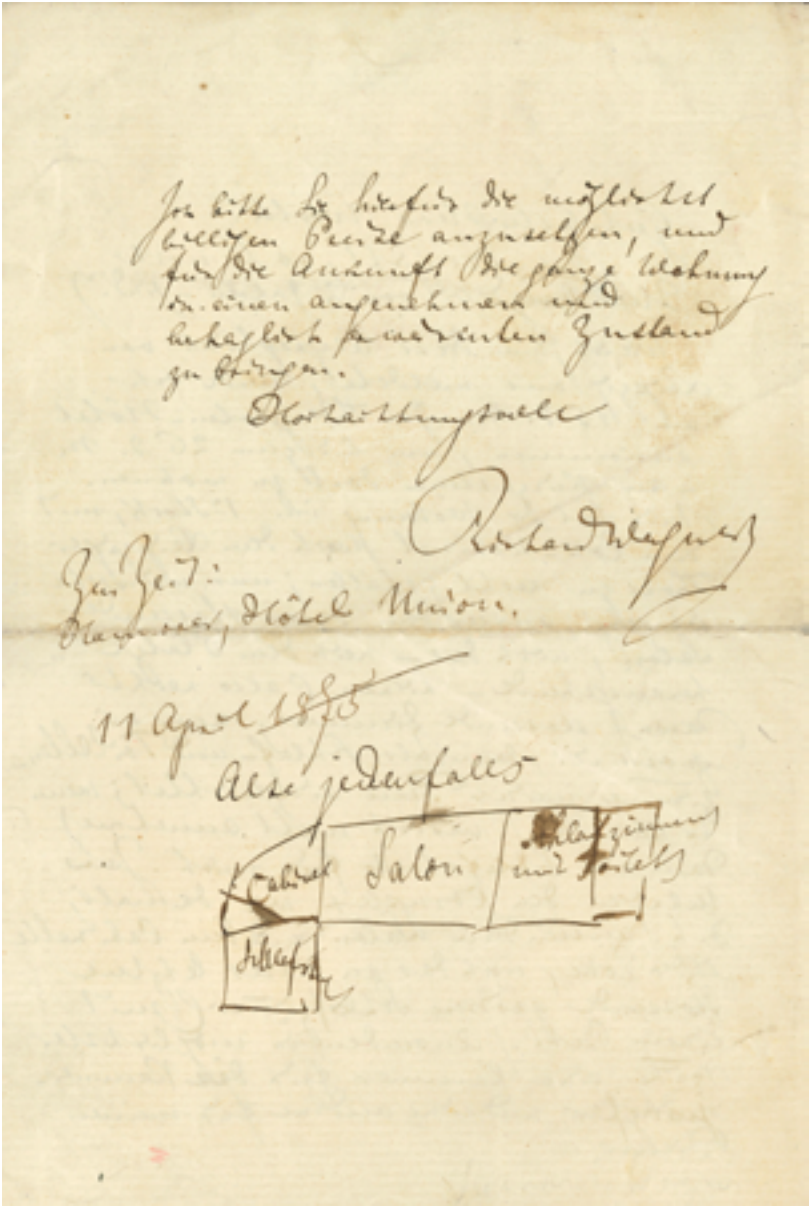 Ich bitte Sie hiefür die möglichst
billigen Preise anzusetzen, und
für die Ankunft die ganze Wohnung
in einen angenehmen und
behaglich erwärmten Zustand
zu bringen.
Hochachtungsvoll
Richard Wagner
Zur Zeit:
Hannover, Hôtel Union.
11 April 1875
Also jedenfalls
Cabinet Salon Schlafzimmer
mit Toilette
Schlafz.